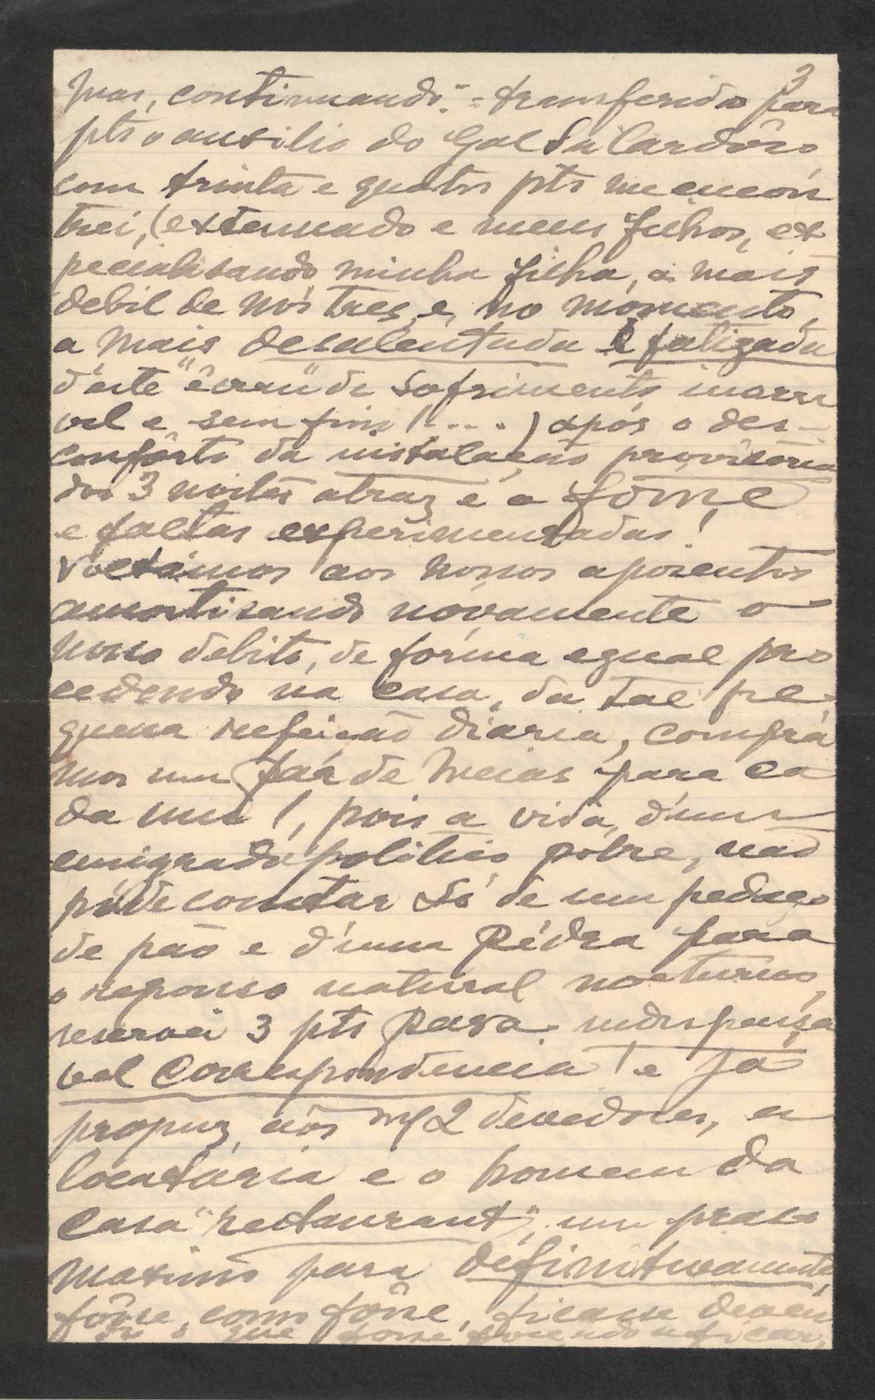 3
Mas, continuando: - transferido para
pts o auxilio do Gal Sá Cardôso
com trinta e quatro pts me encon
trei, (extenuado e meus filhos, es
pecialisando minha filha, a mais
debil de nós tres, e, no momento,
a mais desalentada e fatigada
d'este "écran" de sofrimento inarra
vel e sem fim!....) após o des-
confôrto da instalação provisória
das 3 noites atraz e a fome
e faltas experimentadas!
Voltámos aos nossos aposentos
amortisando nóvamente o
nosso debito, de fórma egual pro
cedendo na casa, da tal pe
quena refeicão diaria, comprá
mos um par de meias para ca
da um!, pois a vida, d'um
emigrado politico pobre, não
póde constar só de um pedaço
de pão e d'uma pédra para
o repouso natural nocturno,
reservei 3 pts para indispensa
vel correspondencia! e já
propuz, aos 2 devedores, a
locatária e o homem da
casa "restaurant", um praso
maximo para definitivamente
fôsse, como fôsse, ficasse